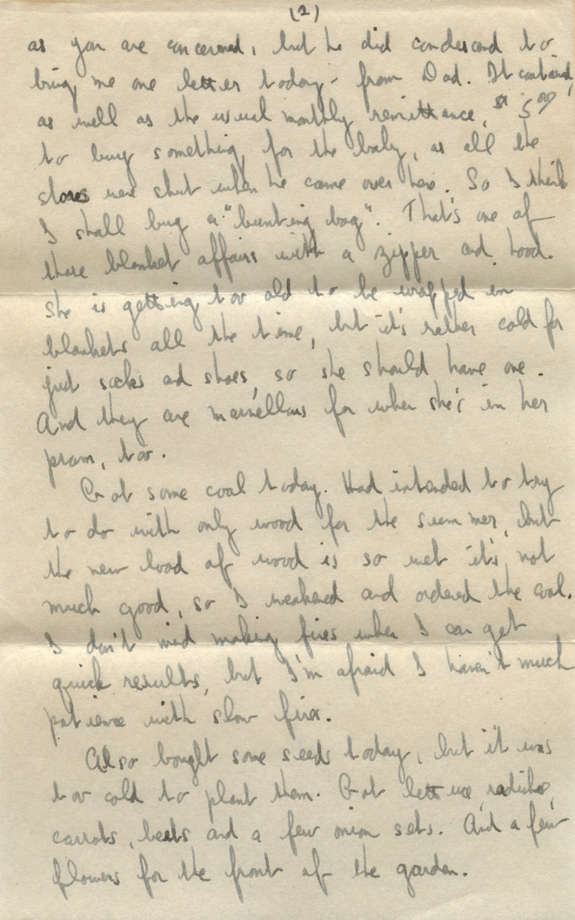 (2)
as you are concerned, but he did condescend to
bring me one letter today - from Dad. It contained,
as well as the usual monthly remittance, $5.00
to buy something for the baby, as all the
stores were shut when he came over here. So I think
I shall buy a "bunting bag". That's one of
those blanket affairs with a zipper and hood.
She is getting too old to be wrapped in
blankets all the time, but it's rather cold for
just socks and shoes, so she should have one.
And they are marvellous for when she's in her
pram, too.
Got some coal today. Had intended to try
to do with only wood for the summer, but
the new load of wood is so wet it's not
much good, so I weakened and ordered the coal.
I don't mind making fires when I can get
quick results, but I'm afraid I haven't much
patience with slow fires.
Also bought some seeds today, but it was
too cold to plant them. Got lettuce, radishes,
carrots, beets and a few onion sets. And a few
flowers for the front of the garden.